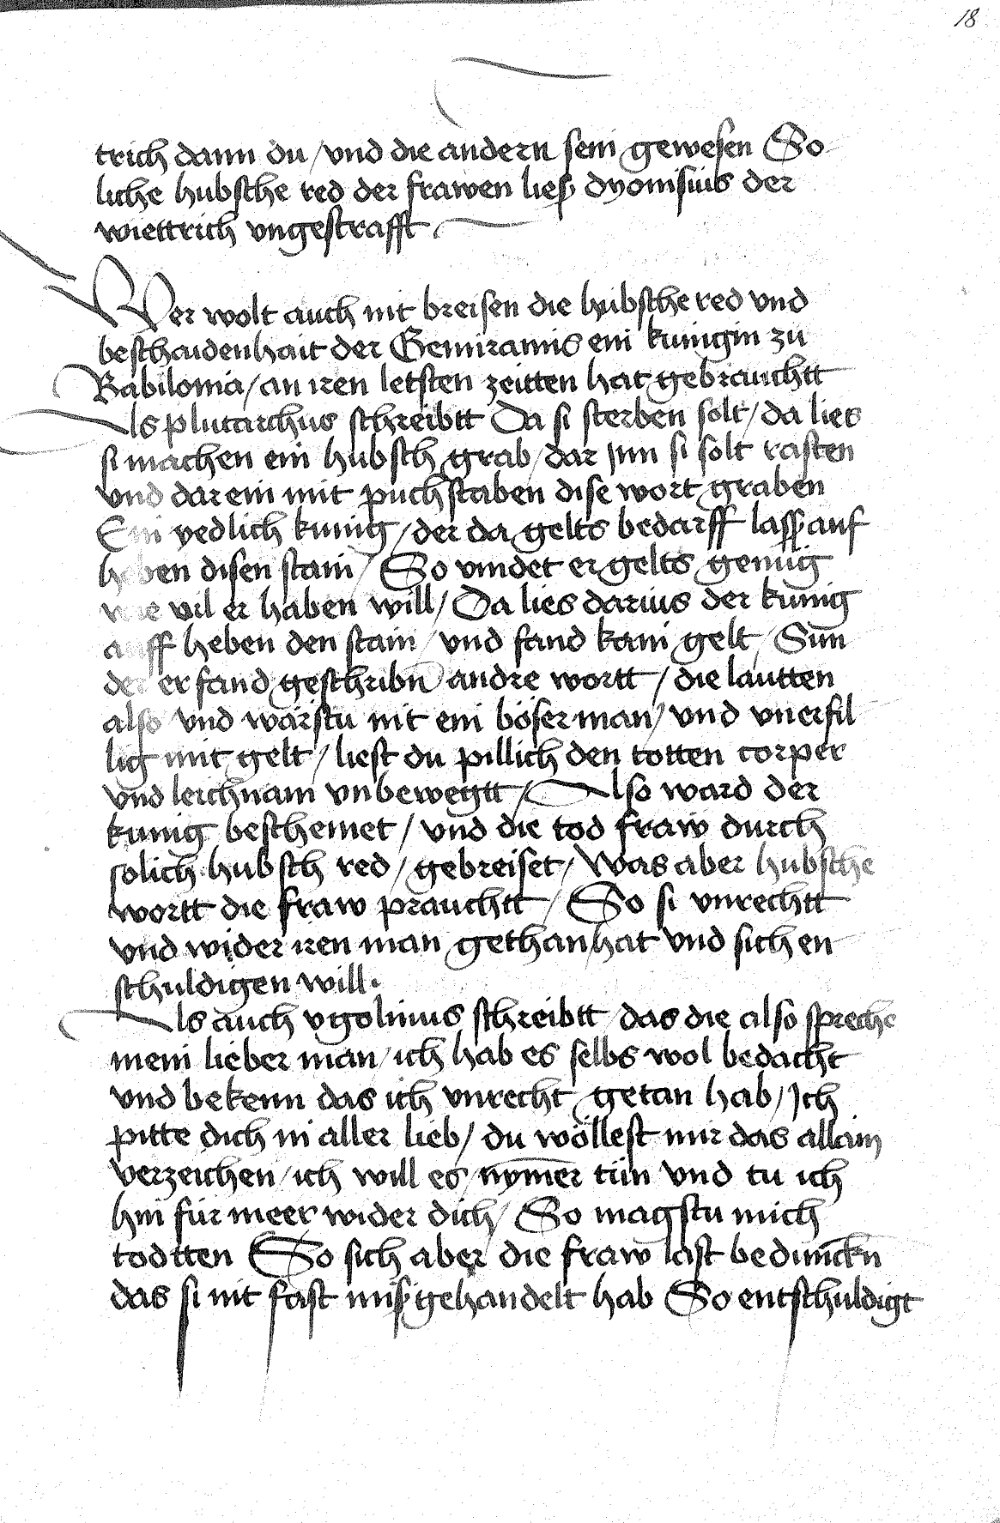 18
trich dann du / vnd die andern sein gewesen So
liche hubsche red der frawen ließ dyonisius der
wiettrich vngestrafft
Wer wolt auch nit breisen die hubsche red vnd
beschaidenhait der Semiramis ein kunigin zu
Babilonia / an iren letsten zeitten hat gebrauchtt
Als plutarchus schreibtt Da si sterben solt / da lies
si machen ein hubsch grab / dar Inn si solt rasten
vnd darein mit puchstaben dise wort graben
Ein yedlich kunig / der da gelts bedarff laß auf
heben disen stain / So vindet er gelts genug
wie vil er haben will / Da lies darius der kunig
auff heben den stain / vnd fand kain gelt / Sun
der er fand geschribn̄ andre wortt / die lautten
also vnd wärstu nit ein böser man / vnd vnersil
lig mit gelt / liest du pillich den totten corper
vnd leichnam vnbewegtt / Also ward der
kunig beschemet / vnd die tod fraw durch
solich hubsch red / gebreiset / Was aber hubsche
wortt die fraw prauchtt / So si vnrechtt
vnd wider iren man gethan hat vnd sich en
schuldigen will.
Als auch vgolinus schreibtt / das die also spreche
mein lieber man / ich hab es selbs wol bedacht
vnd bekenn das ich vnrecht getan hab / Ich
pitte dich in aller lieb / du wöllest mir das allain
verzeichen / ich will es nym̄er tün vnd tu ich
hin für meer wider dich / So magstu mich
todtten So sich aber die fraw last bedunckn̄
das si nit fast mißgehandelt hab So entschuldigt